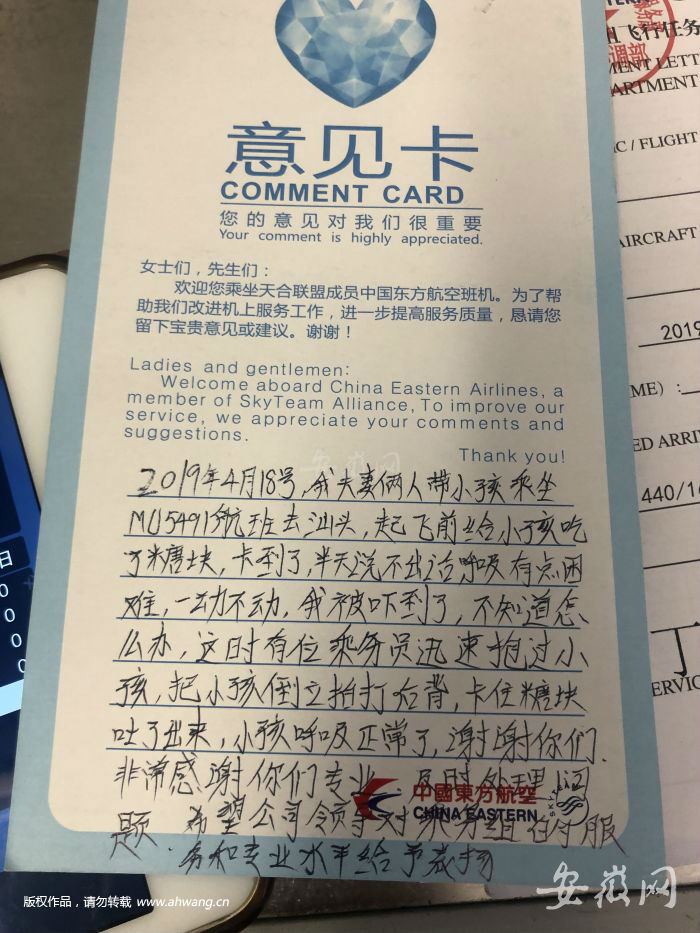 意见卡
COMMENT CARD
您的意见对我们很重要
Your comment is highly appreciated.
女士们，先生们：
欢迎您乘坐天合联盟成员中国东方航空班机。为了帮
助我们改进机上服务工作，进一步提高服务质量，恳请您
留下宝贵意见或建议。谢谢！
Ladies and gentlemen:
Welcome aboard China Eastern Airlines, a
member of SkyTeam Alliance, To improve our
service, we appreciate your comments and
suggestions.
Thank you!
2019年4月18号，我夫妻俩人带小孩乘坐
MU5491航班去汕头，起飞前给小孩吃
了糖块，卡到了，半天说不出话，呼吸有点困
难，一动不动，我被吓到了，不知道怎
么办，这时有位乘务员迅速抱过小
孩，把小孩倒立拍打后背，卡住糖块
吐了出来，小孩呼吸正常了，谢谢你们.
非常感谢你们专业、及时处理问
题.希望公司领导对乘务组的服
务和专业水平给予表扬
中國東方航空
CHINA EASTERN
飞行任务
MENT LETT
ARTMENT
/ FLIGHT
AIRCRAFT
2019
ME）:
ED ARRI
440/1
丁
ERVIC
日
0
0
0
0
安徽网
版权作品，请勿转载 www.ahwang.cn
安徽网